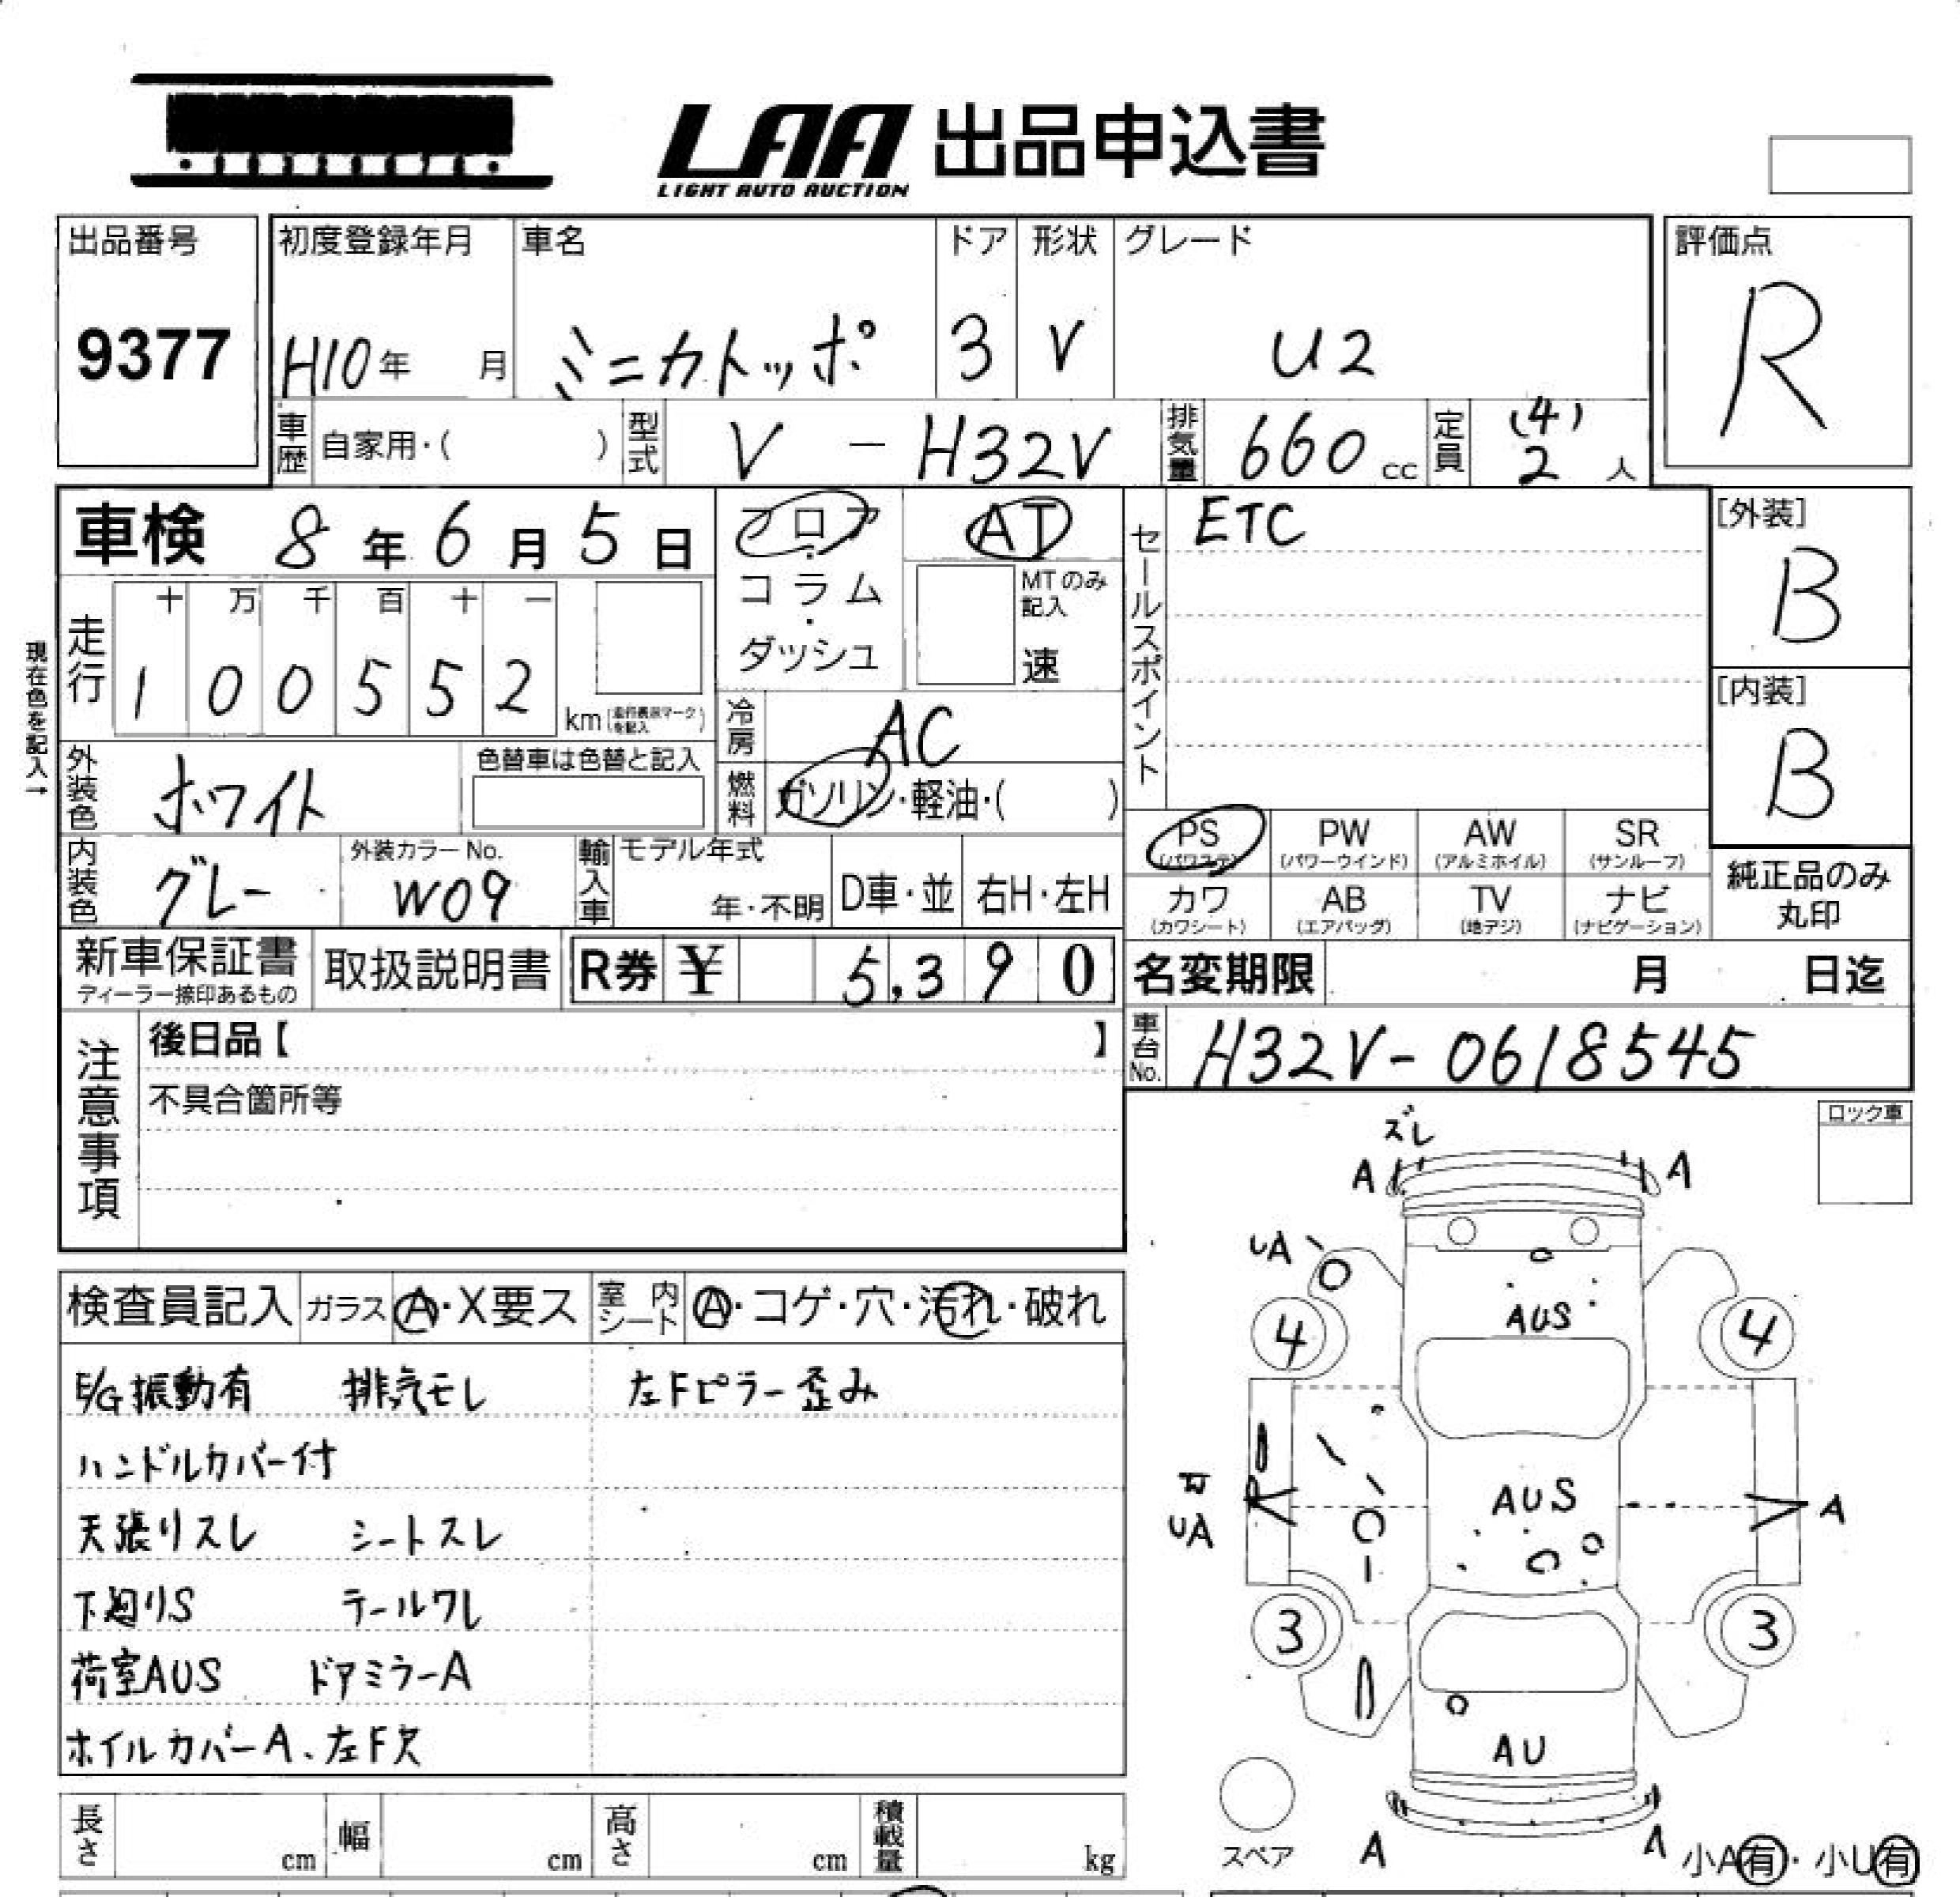 LAA 出品申込書
LIGHT AUTO AUCTION
出品番号
9377
初度登録年月 車名 ドア 形状 グレード
H10年 月 ミニカトッポ 3 V U2
評価点
R
車歴 自家用・( ) 型式 V - H32V 排気量 660 cc 定員 (4) 2 人
車検 8年 6月 5日
フロア・コラム・ダッシュ
AT
MTのみ記入
速
セールスポイント
ETC
[外装]
B
[内装]
B
現在色を記入→
走行
十 万 千 百 十 一
1 0 0 5 5 2 km
冷房 AC
燃料 ガソリン・軽油・( )
外装色 ホワイト
色替車は色替と記入
内装色 グレー
外装カラーNo.
W09
輸入車 モデル年式
年・不明 D車・並 右H・左H
PS (パワステ) PW (パワーウインド) AW (アルミホイル) SR (サンルーフ)
カワ (カワシート) AB (エアバッグ) TV (地デジ) ナビ (ナビゲーション)
純正品のみ
丸印
新車保証書
ディーラー捺印あるもの
取扱説明書
R券 ¥ 5,390
名変期限 月 日迄
車台No. H32V-0618545
注意事項
後日品【 】
不具合箇所等
ロック車
検査員記入 ガラス A・X要ス 室内シート A・コゲ・穴・汚れ・破れ
E/G振動有 排気モレ 左Fピラー歪み
ハンドルカバー付
天張りスレ シートスレ
下廻りS テールワレ
荷室AUS ドアミラーA
ホイルカバーA、左F欠
ズレ
A A
UA
AUS
4 4
AUS
UA
A
3 3
AU
スペア
A A
小A有・小U有
長さ cm 幅 cm 高さ cm 積載量 kg